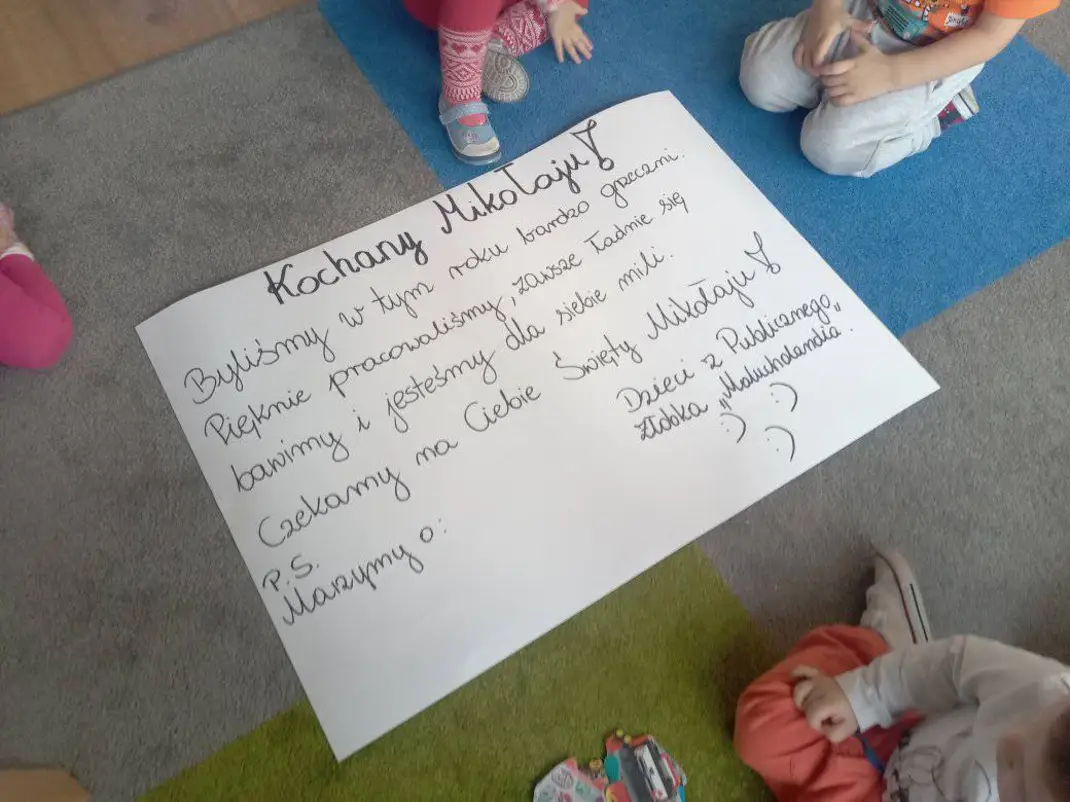 Kochany Mikołaju!
Byliśmy w tym roku bardzo grzeczni.
Pięknie pracowaliśmy, zawsze ładnie się
bawimy i jesteśmy dla siebie mili.
Czekamy na Ciebie Święty Mikołaju!
Dzieci z Publicznego
Żłobka „Malucholandia”.
:) :)
:)
P.S.
Marzymy o: